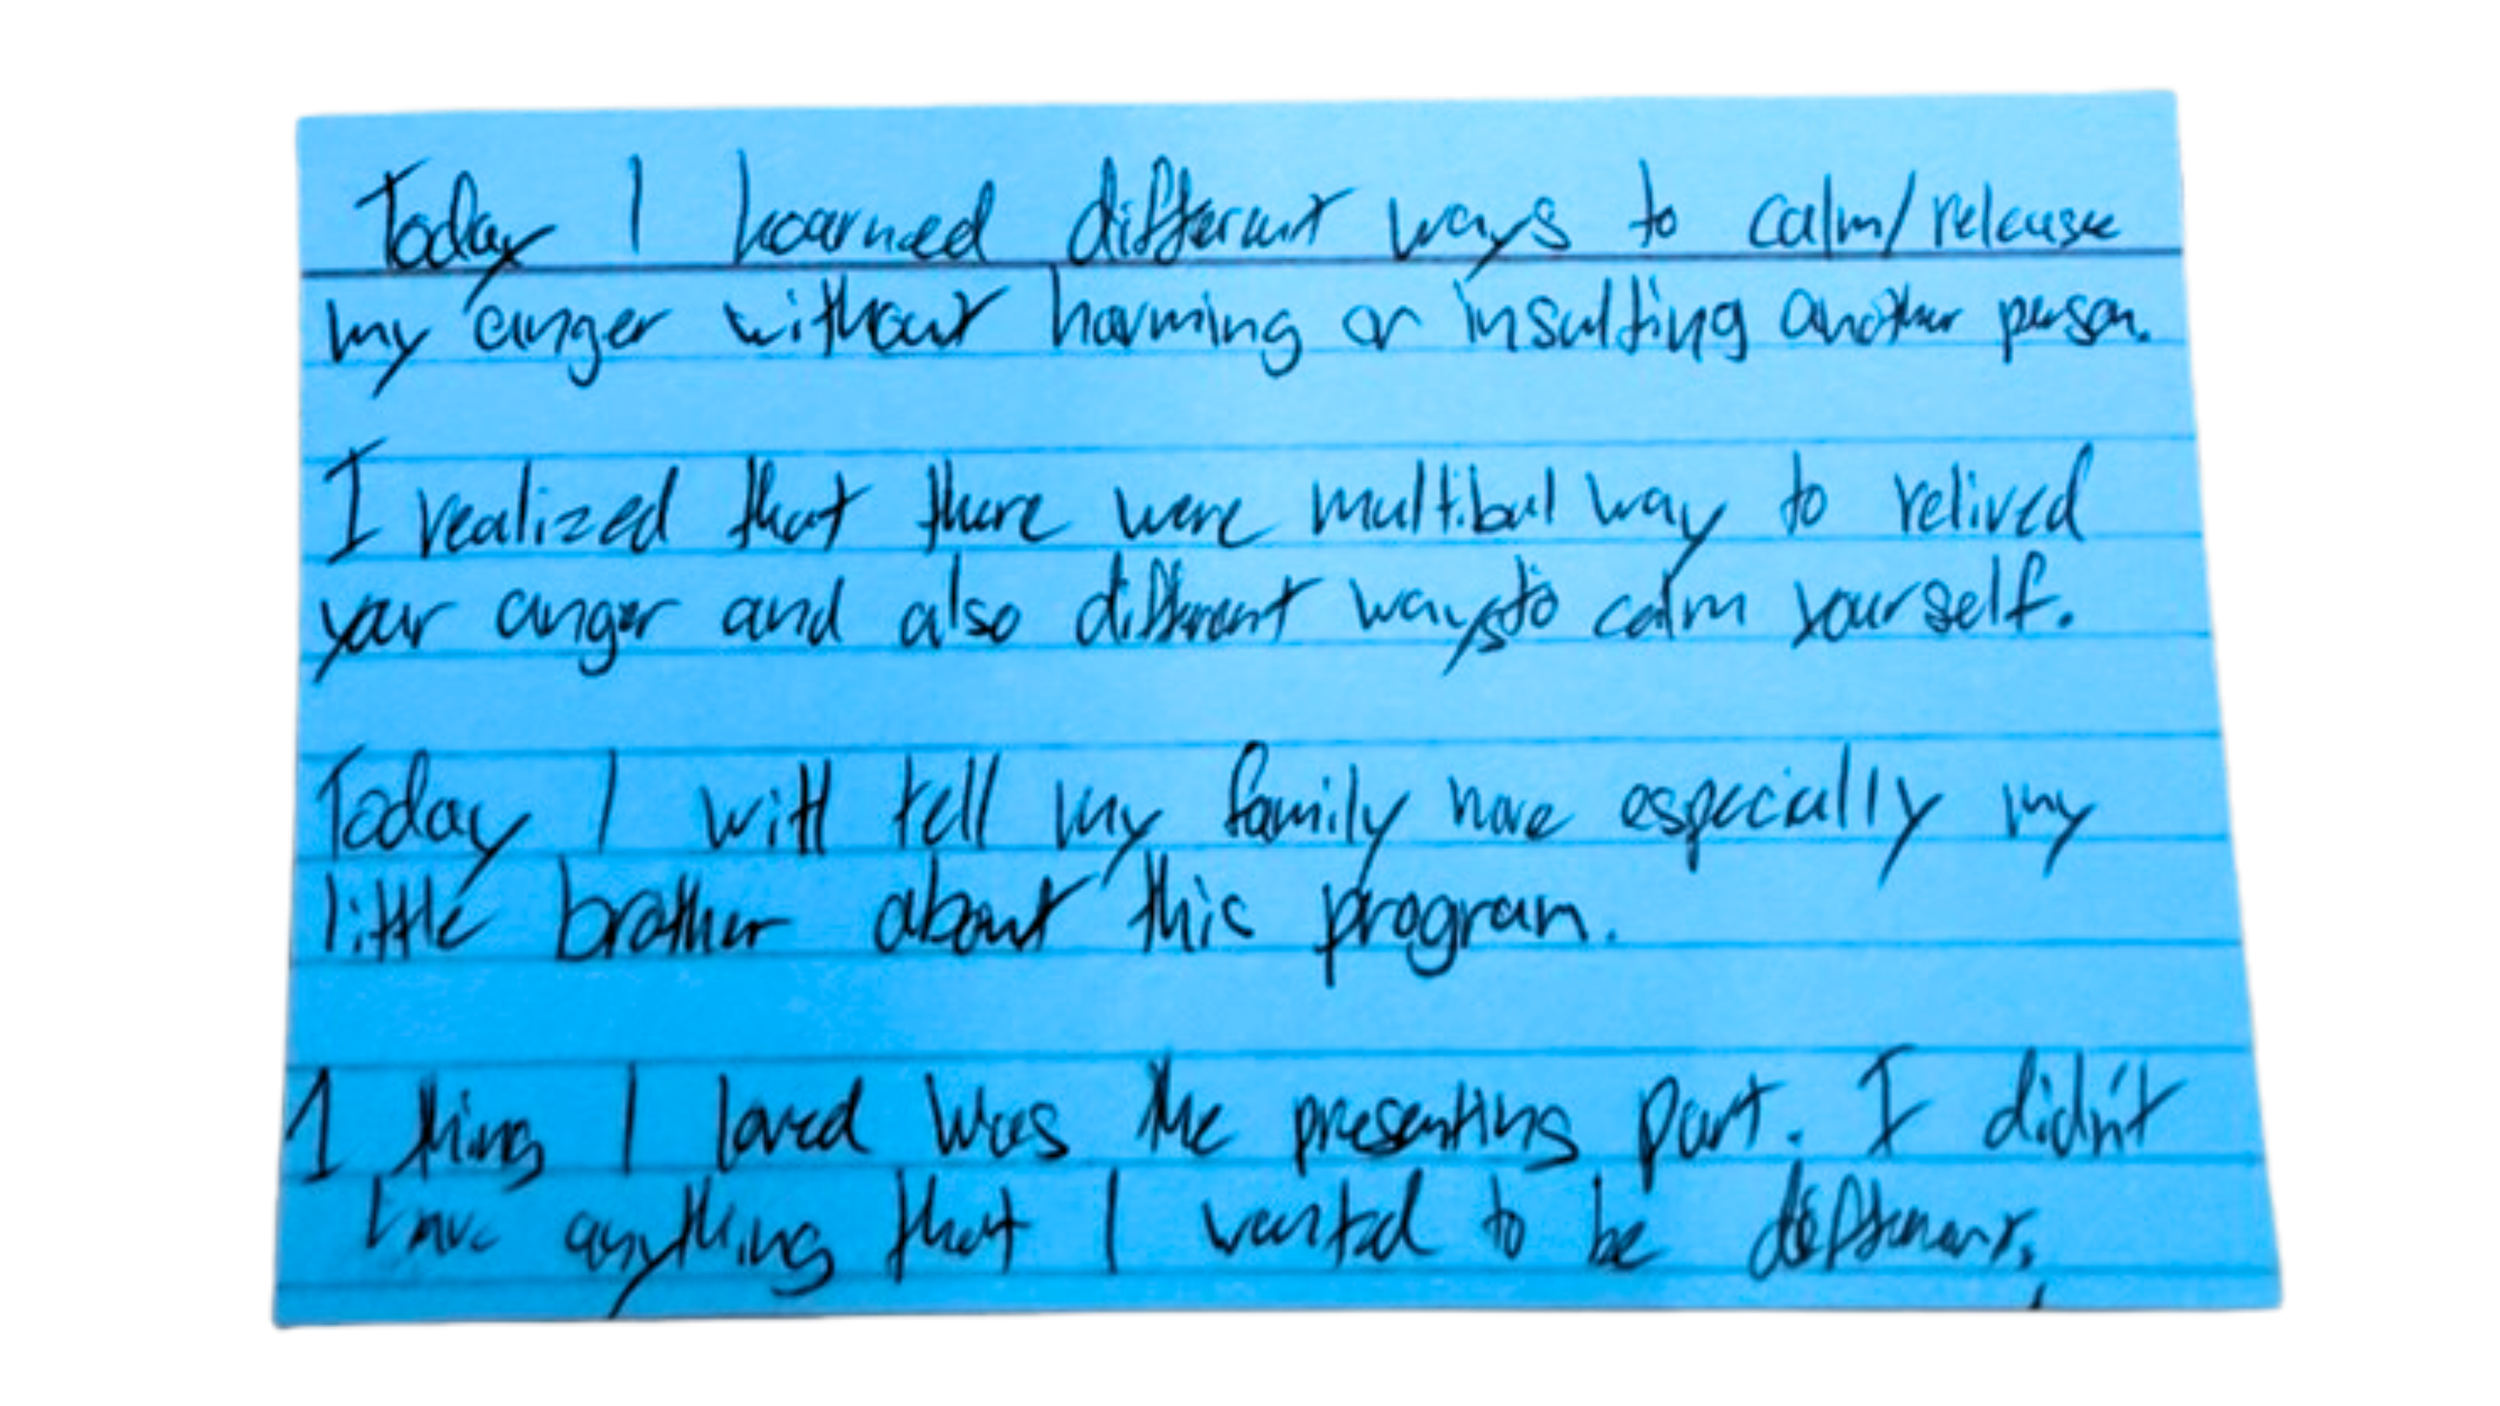 Today I learned different ways to calm/release
my anger without harming or insulting another person.
I realized that there were multibul way to relived
your anger and also different ways to calm yourself.
Today I will tell my family more especially my
little brother about this program.
1 thing I loved was the presenting part. I didn't
have anything that I wanted to be different.